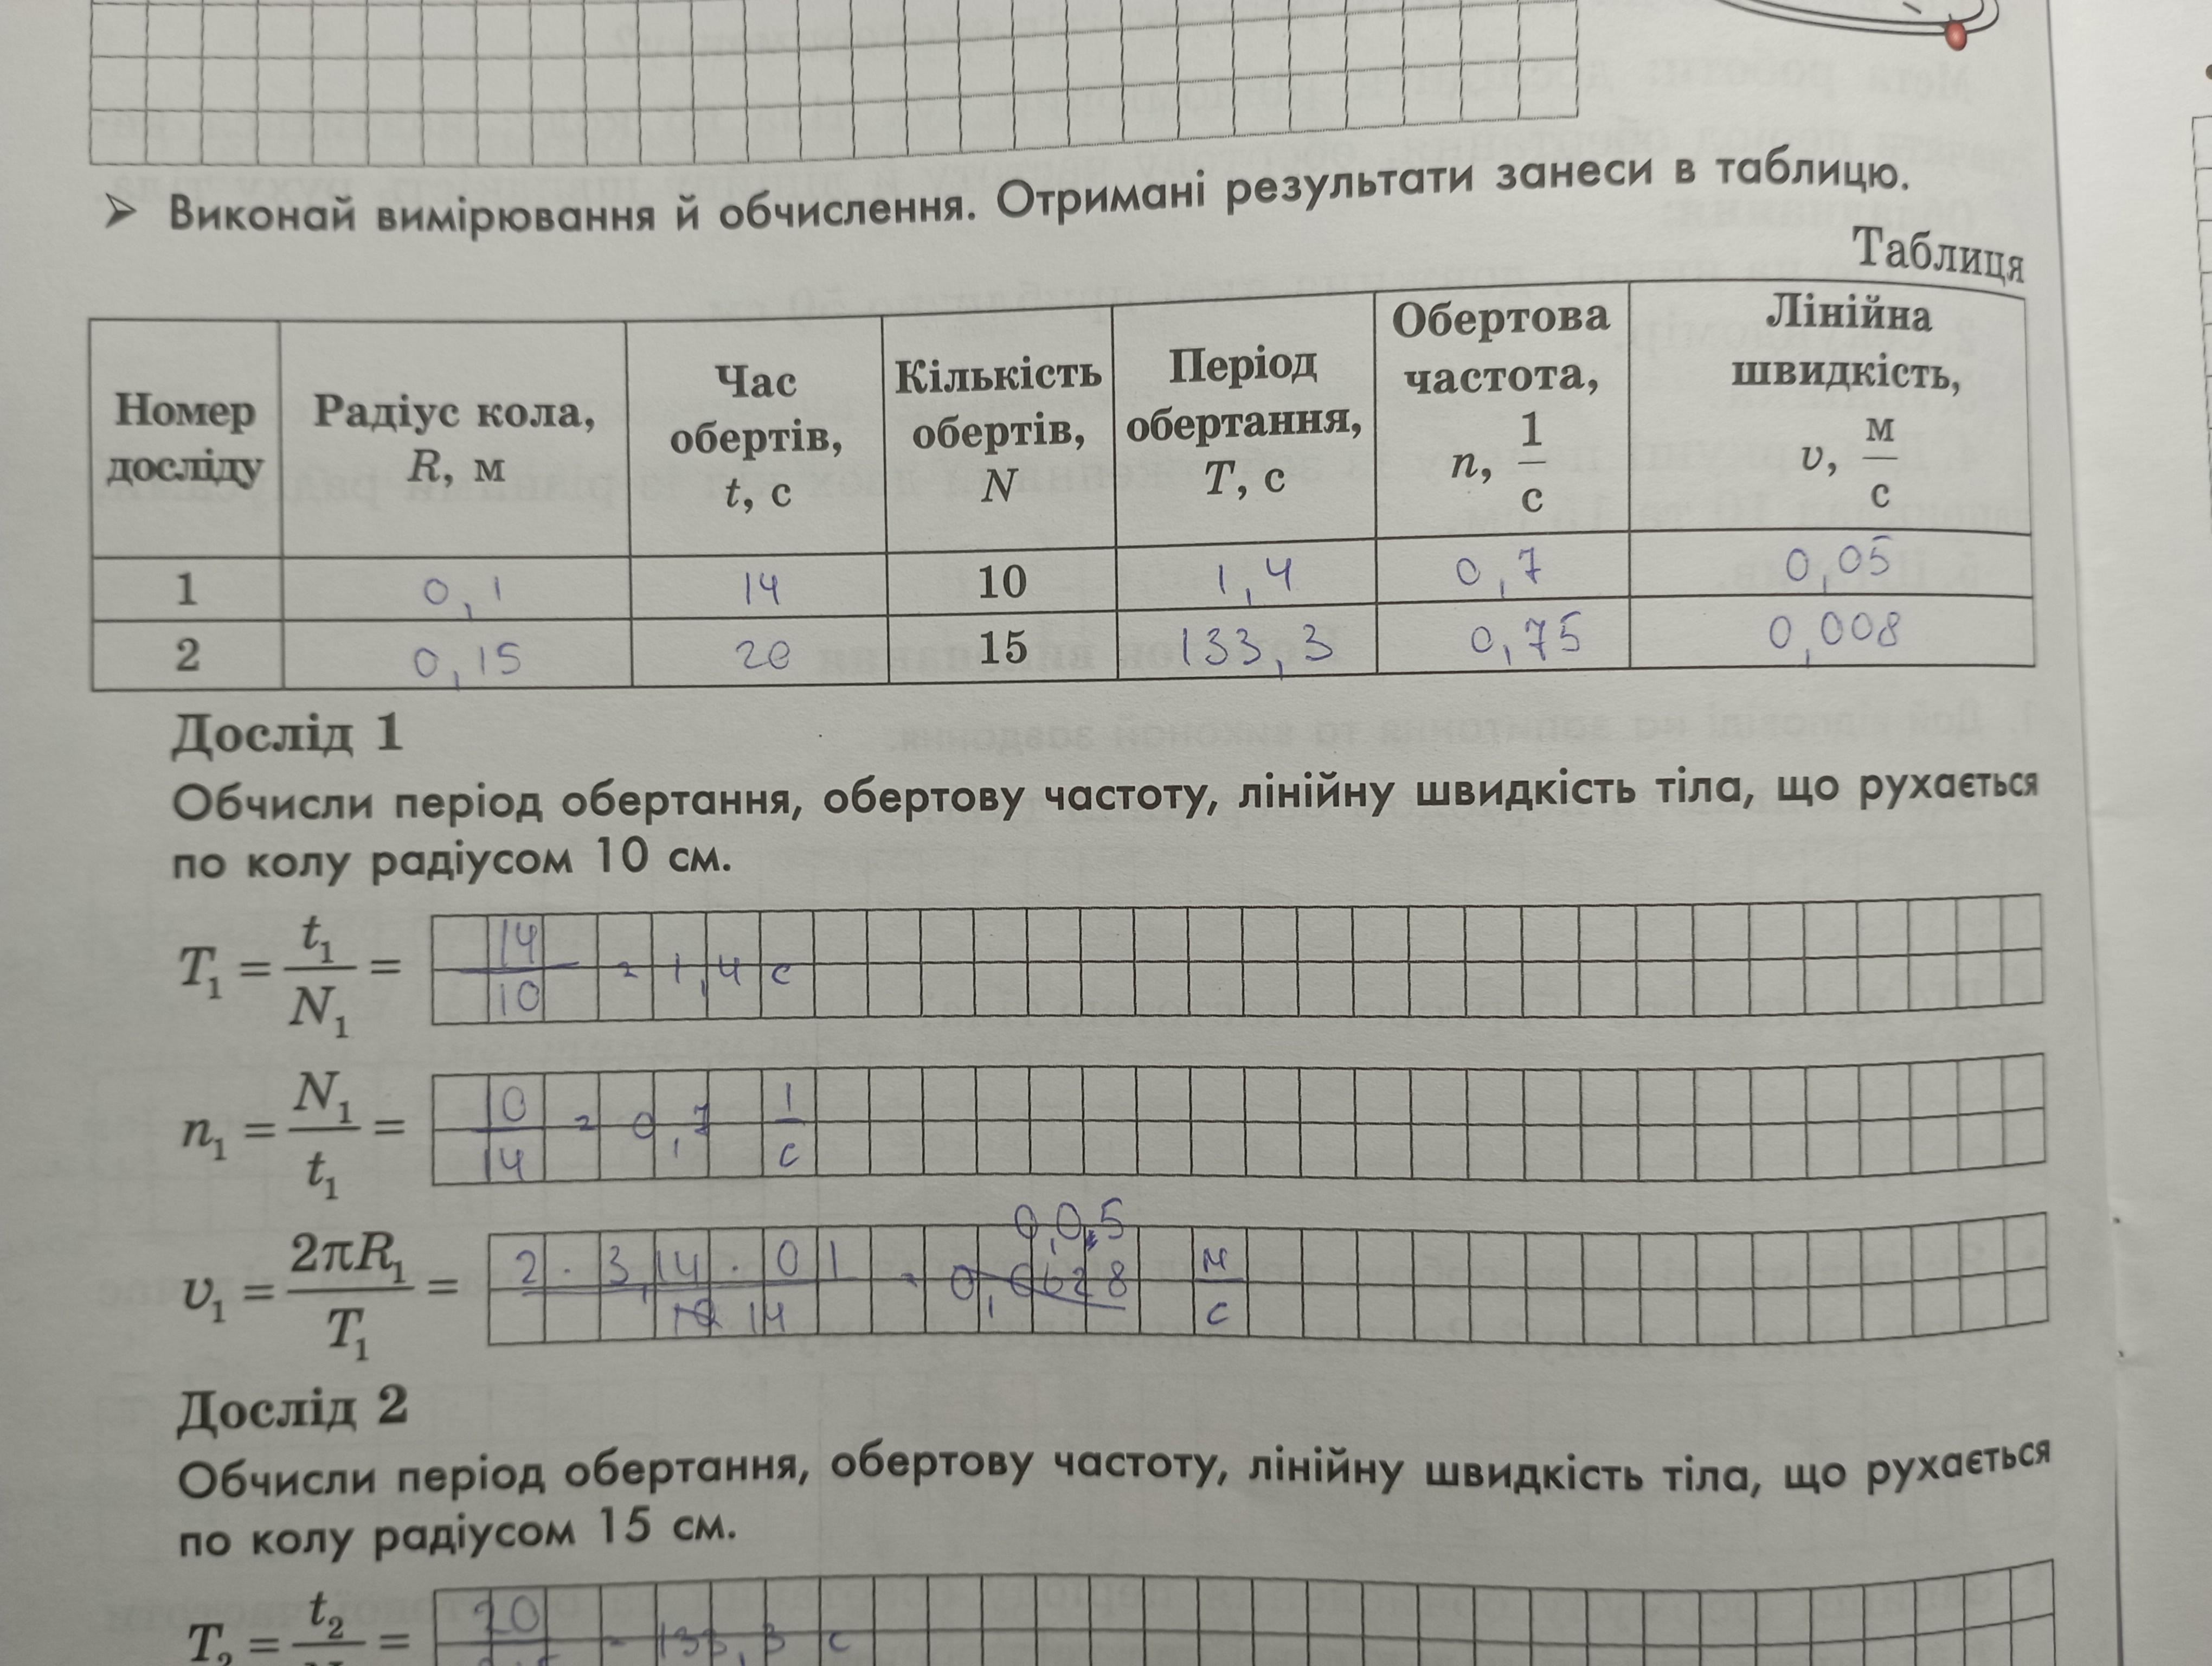 ➤ Виконай вимірювання й обчислення. Отримані результати занеси в таблицю.
Таблиця
Номер досліду | Радіус кола, R, м | Час обертів, t, с | Кількість обертів, N | Період обертання, T, с | Обертова частота, n, 1/с | Лінійна швидкість, υ, м/с
1 | 0,1 | 14 | 10 | 1,4 | 0,7 | 0,05
2 | 0,15 | 20 | 15 | 133,3 | 0,75 | 0,008
Дослід 1
Обчисли період обертання, обертову частоту, лінійну швидкість тіла, що рухається
по колу радіусом 10 см.
T₁ = t₁/N₁ = 14/10 = 1,4 с
n₁ = N₁/t₁ = 10/14 = 0,7 1/с
0,05
υ₁ = 2πR₁/T₁ = 2 · 3,14 · 0 1 / 14 = 0,0628 м/с
Дослід 2
Обчисли період обертання, обертову частоту, лінійну швидкість тіла, що рухається
по колу радіусом 15 см.
T₂ = t₂ = 20 = 133,3 с